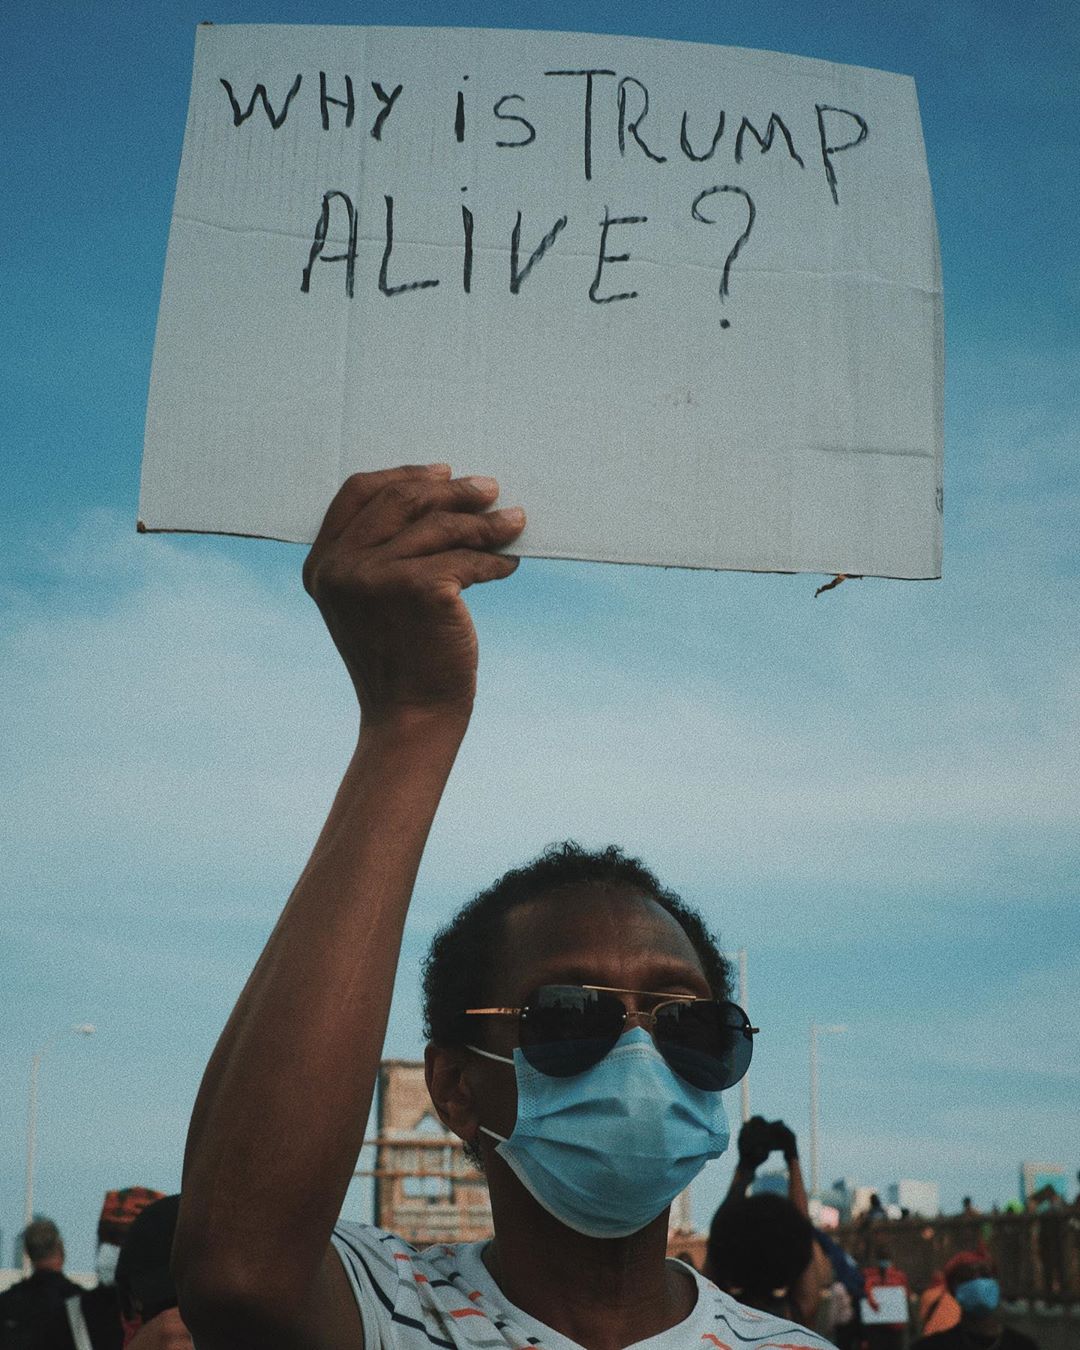 WHY is TRUMP
ALiVE?